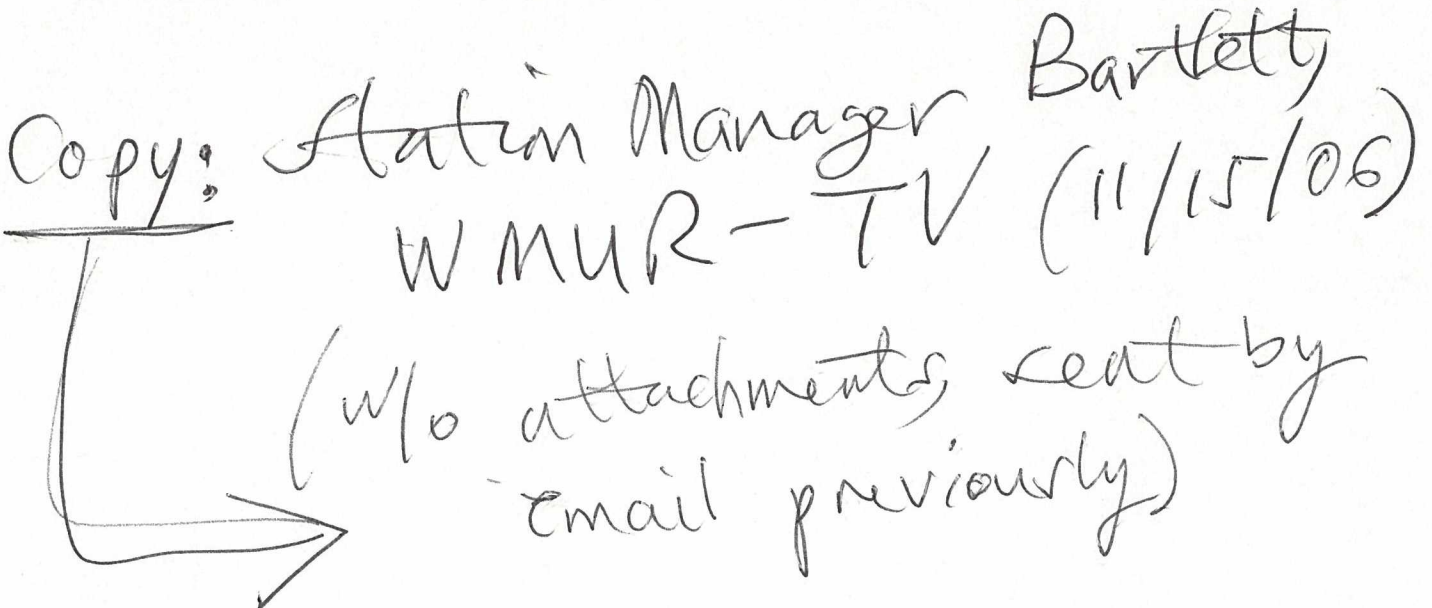 Copy: Station Manager Bartlett,
WMUR-TV (11/15/06)
(w/o attachments, sent by
email previously)